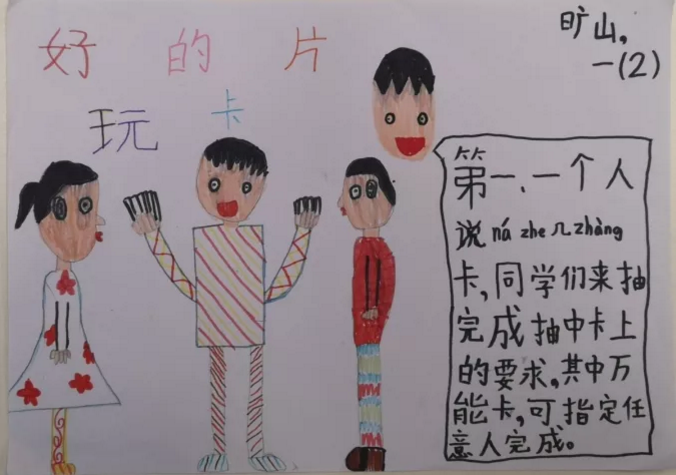 好的片
玩卡
旷山,
一(2)
第一、一个人
说ná zhe几zhàng
卡,同学们来抽
完成抽中卡上
的要求,其中万
能卡,可指定任
意人完成。